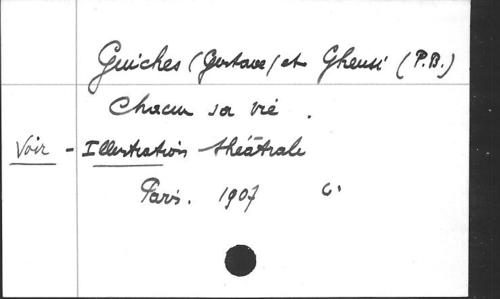 Guiches (Gustave) et Gheusi (P.B.)
Chacun sa vie.
Voir - Illustration théâtrale
Paris. 1907